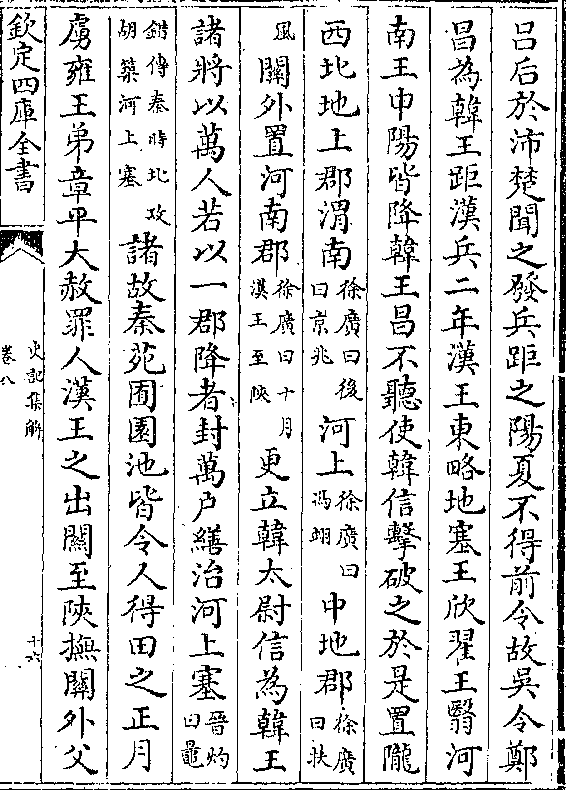 吕后於沛楚聞之發兵距之陽夏不得前令故吳令鄭
昌為韓王距漢兵二年漢王東略地塞王欣翟王翳河
南王申陽皆降韓王昌不聽使韓信擊破之於是置隴
西北地上郡渭南徐廣曰後曰京兆河上徐廣曰馮翊中地郡徐廣曰扶
風關外置河南郡徐廣曰十月漢王至陜更立韓太尉信為韓王
諸將以萬人若以一郡降者封萬户繕治河上塞晉灼曰鼂
錯傳秦時北攻胡築河上塞諸故秦苑囿園池皆令人得田之正月
虜雍王弟章平大赦罪人漢王之出關至陜撫關外父
欽定四庫全書
史記集解
卷八
十六